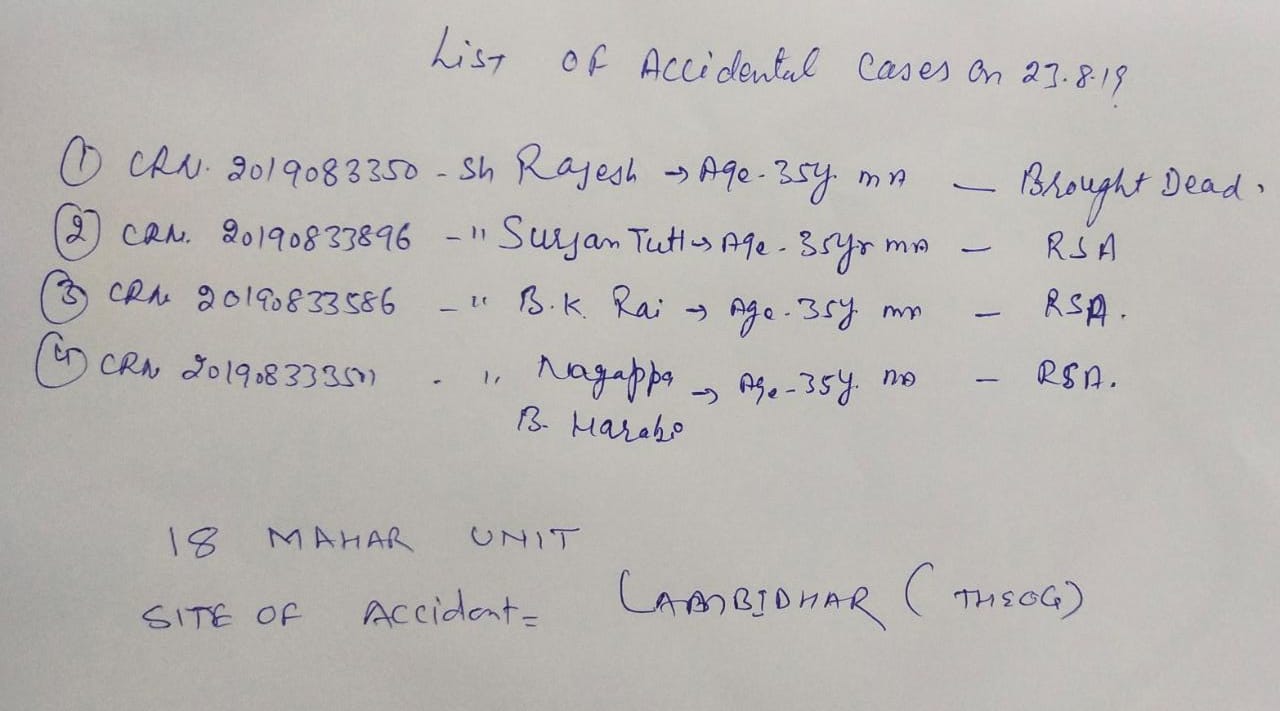 List of Accidental Cases on 23.8.19
① CRN. 2019083350 - Sh Rajesh → Age-35y. mA — Brought Dead.
② CRN. 20190833896 - " Surjan Tutt → Age - 35yr mA — RSA
③ CRN 20190833586 - " B.K. Rai → Age-35y mA — RSA.
④ CRN - " Nagappa → Age-35y. mA — RSA.
B.
18 MAHAR UNIT
SITE OF Accident = LAMBIDHAR (THEOG)